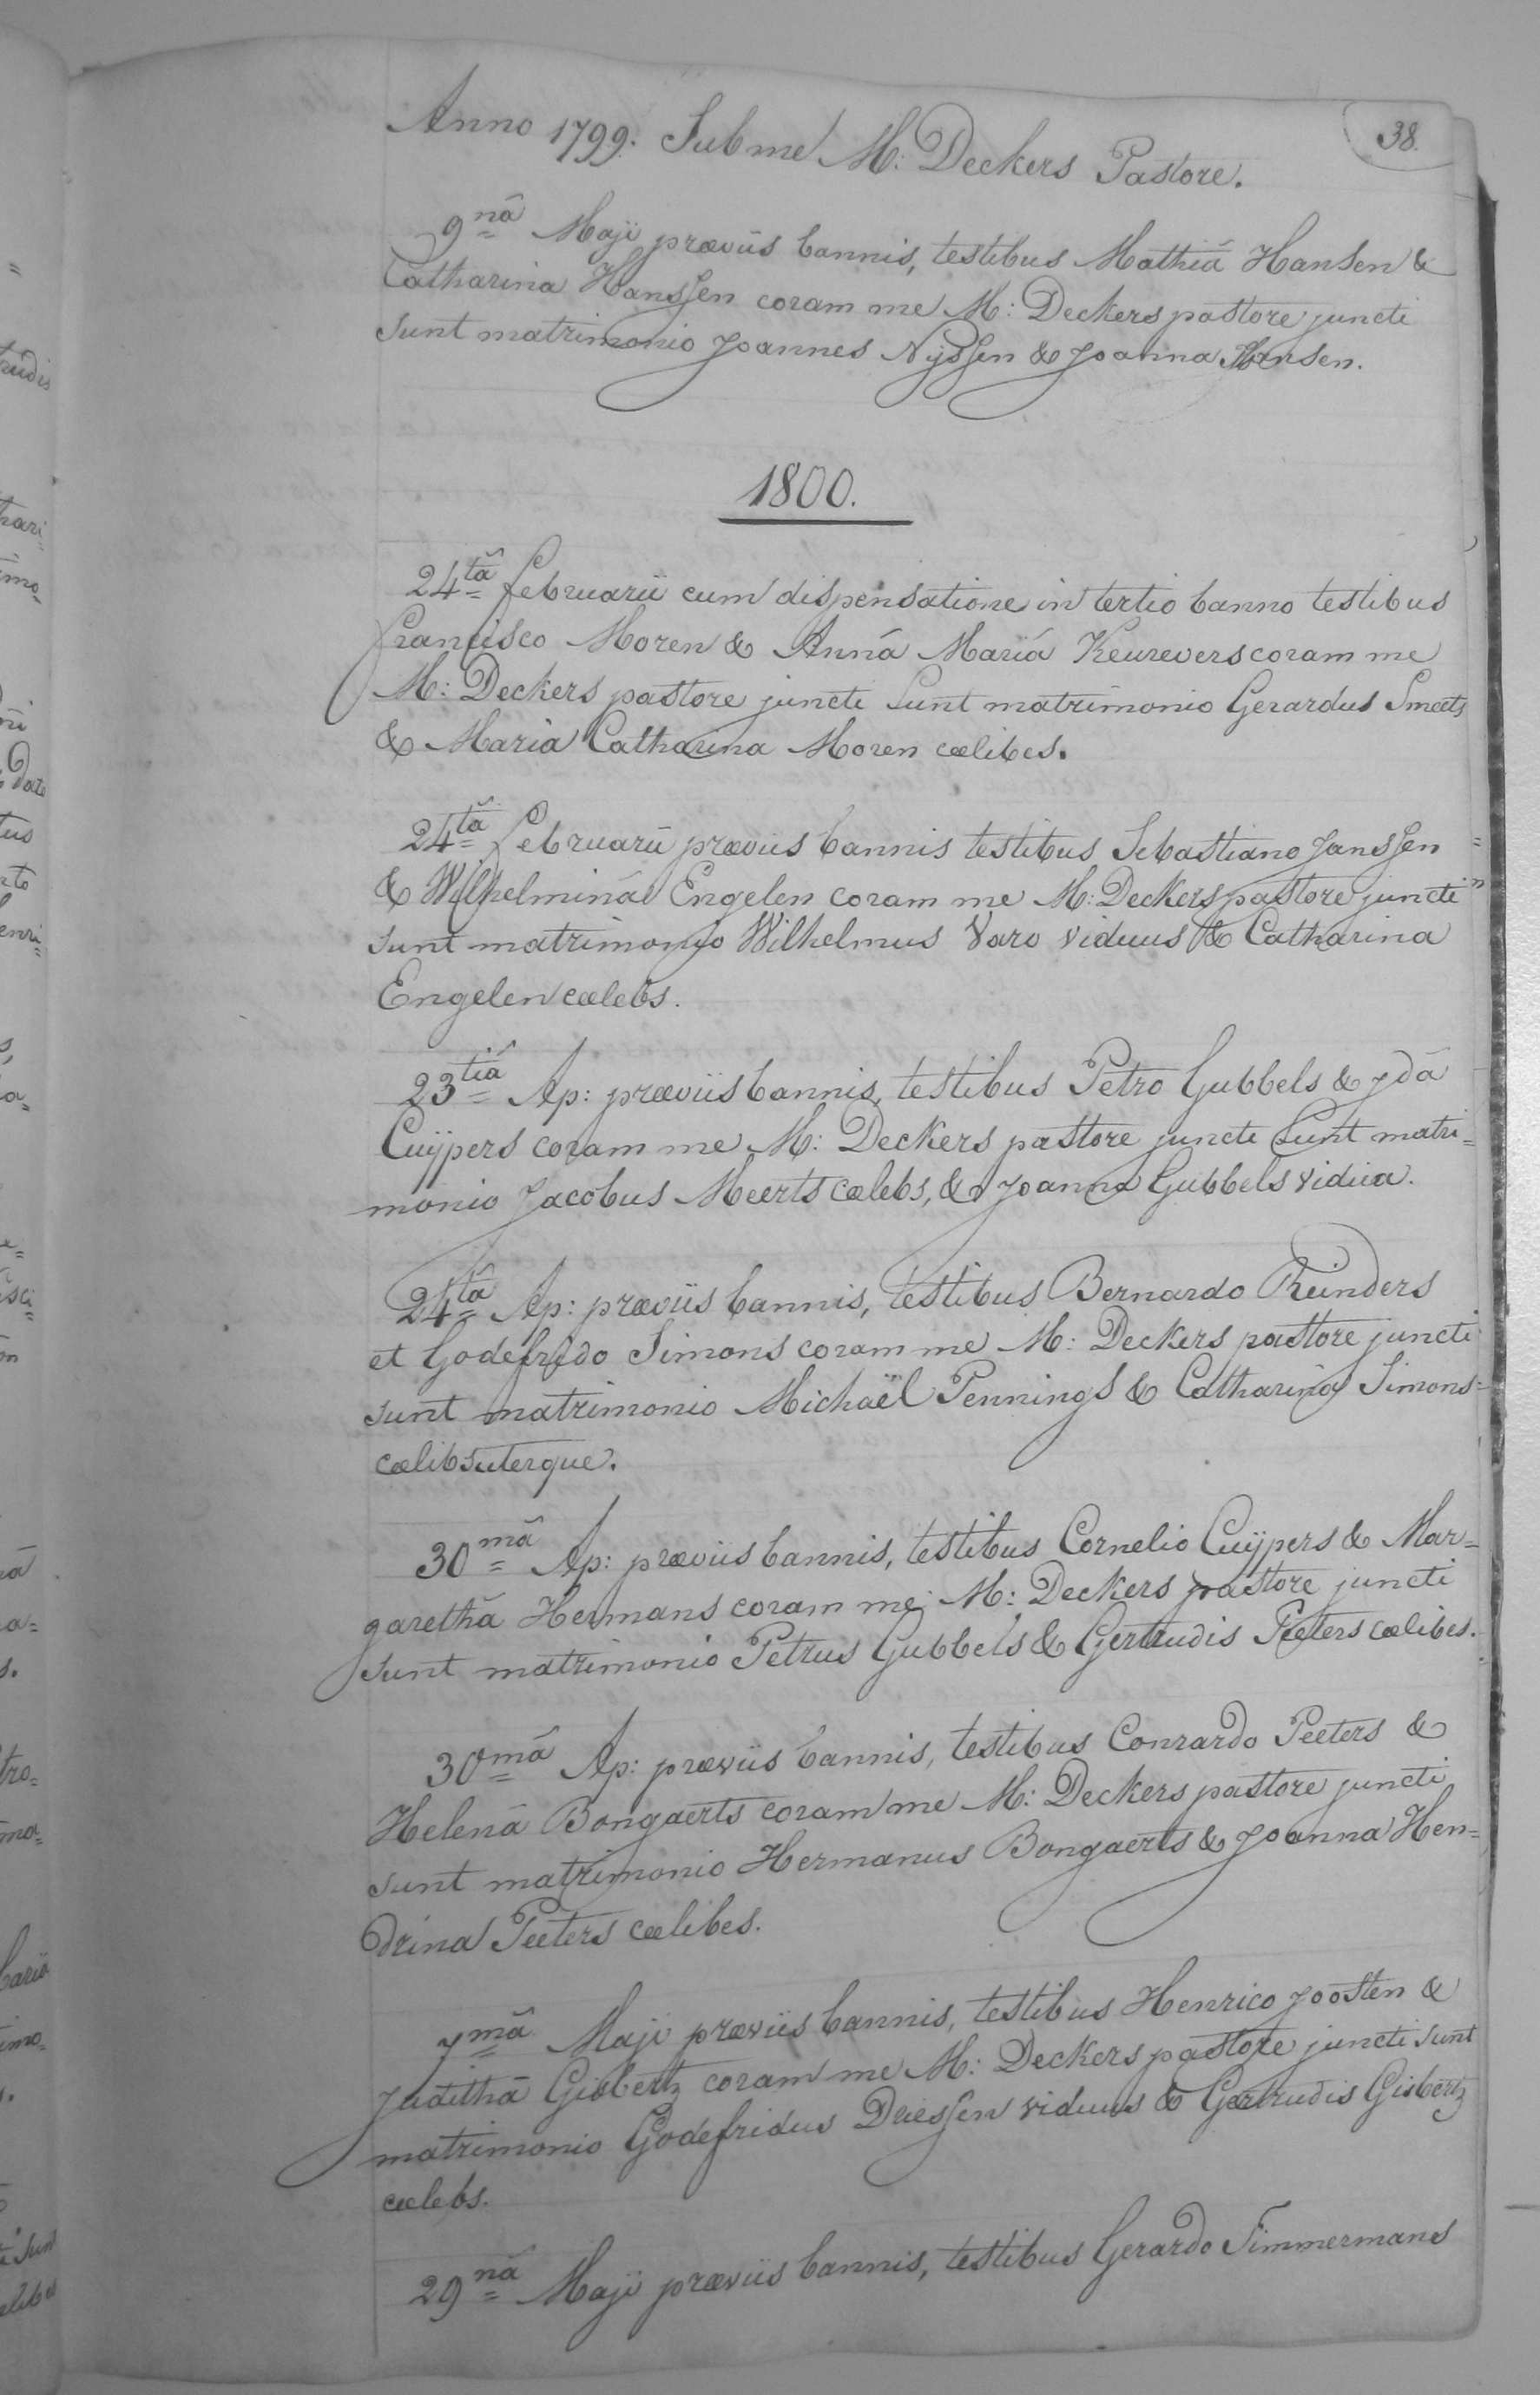 38.
Anno 1799. Sub me M: Deckers Pastore.
9nâ Maji præviis bannis, testibus Mathiâ Hansen &
Catharina Hanssen coram me M: Deckers pastore juncti
sunt matrimonio Joannes Nyssen & Joanna Hansen.
1800.
24tâ februarii cum dispensatione in tertio banno testibus
francisco Moren & Annâ Mariâ Keurevers coram me
M: Deckers pastore juncti sunt matrimonio Gerardus Smeets
& Maria Catharina Moren cælibes.
24tâ februarii præviis bannis testibus Sebastiano Janssen
& Wilhelminâ Engelen coram me M: Deckers pastore juncti
sunt matrimonio Wilhelmus Varo viduus & Catharina
Engelen cælebs.
23tiâ Ap: præviis bannis, testibus Petro Gubbels & Jdâ
Cuÿpers coram me M: Deckers pastore juncti sunt matri=
monio Jacobus Meerts cælebs, & Joanna Gubbels vidua.
24tâ Ap: præviis bannis, testibus Bernardo Reinders
et Godefrido Simons coram me M: Deckers pastore juncti
sunt matrimonio Michaël Pennings & Catharina Simons
cælibsuterque.
30mâ Ap: præviis bannis, testibus Cornelio Cuÿpers & Mar=
garethâ Hermans coram me M: Deckers pastore juncti
sunt matrimonio Petrus Gubbels & Gertrudis Peeters cælibes.
30mâ Ap: præviis bannis, testibus Conrardo Peeters &
Helenâ Bongaerts coram me M: Deckers pastore juncti
sunt matrimonio Hermanus Bongaerts & Joanna Hen=
drina Peeters cælibes.
7mâ Maji præviis bannis, testibus Henrico Joosten &
Judithâ Gisbertz coram me M: Deckers pastore juncti sunt
matrimonio Godefridus Driessen viduus & Gertrudis Gisbertz
cælebs.
29nâ Maji præviis bannis, testibus Gerardo Timmermans